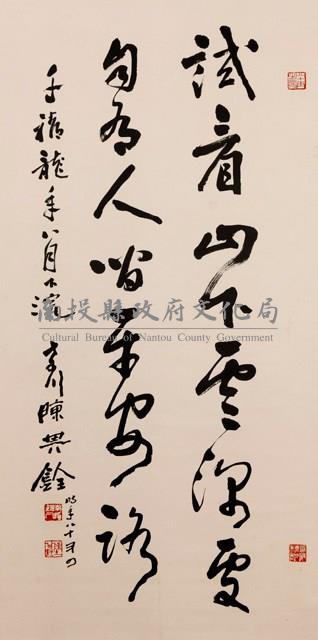 試看山下雲深處
自有人間平安路
千禧龍年八月下澣奇川陳其銓
時年八十四
南投縣政府文化局
Cultural Bureau of Nantou County Government